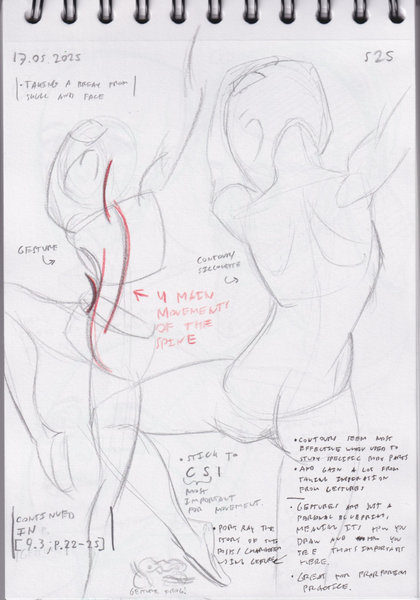 17.05.2025
S25
• TAKING A BREAK FROM
SKULL AND FACE
GESTURE
CONTOUR/
SILLOUETTE
4 MAIN
MOVEMENTS
OF THE
SPINE
• STICK TO
C S I
MOST
IMPORTANT
FOR MOVEMENT.
• PORTRAY THE
STORY OF THE
POSES/CHARACTER
USING GESTURE
CONTINUED
IN
[9.3, P.22-25]
GESTURE FROG!
• CONTOURS SEEM MOST
EFFECTIVE WHEN USED TO
STUDY SPECIFIC BODY PARTS
• AND GAIN A LOT FROM
TAKING INFORMATION
FROM GESTURES
• GESTURES ARE JUST A
PERSONAL BLUEPRINT,
MEANING IT'S HOW YOU
DRAW AND HOW YOU
SEE THAT'S IMPORTANT
HERE.
• GREAT FOR PROPORTION
PRACTICE.